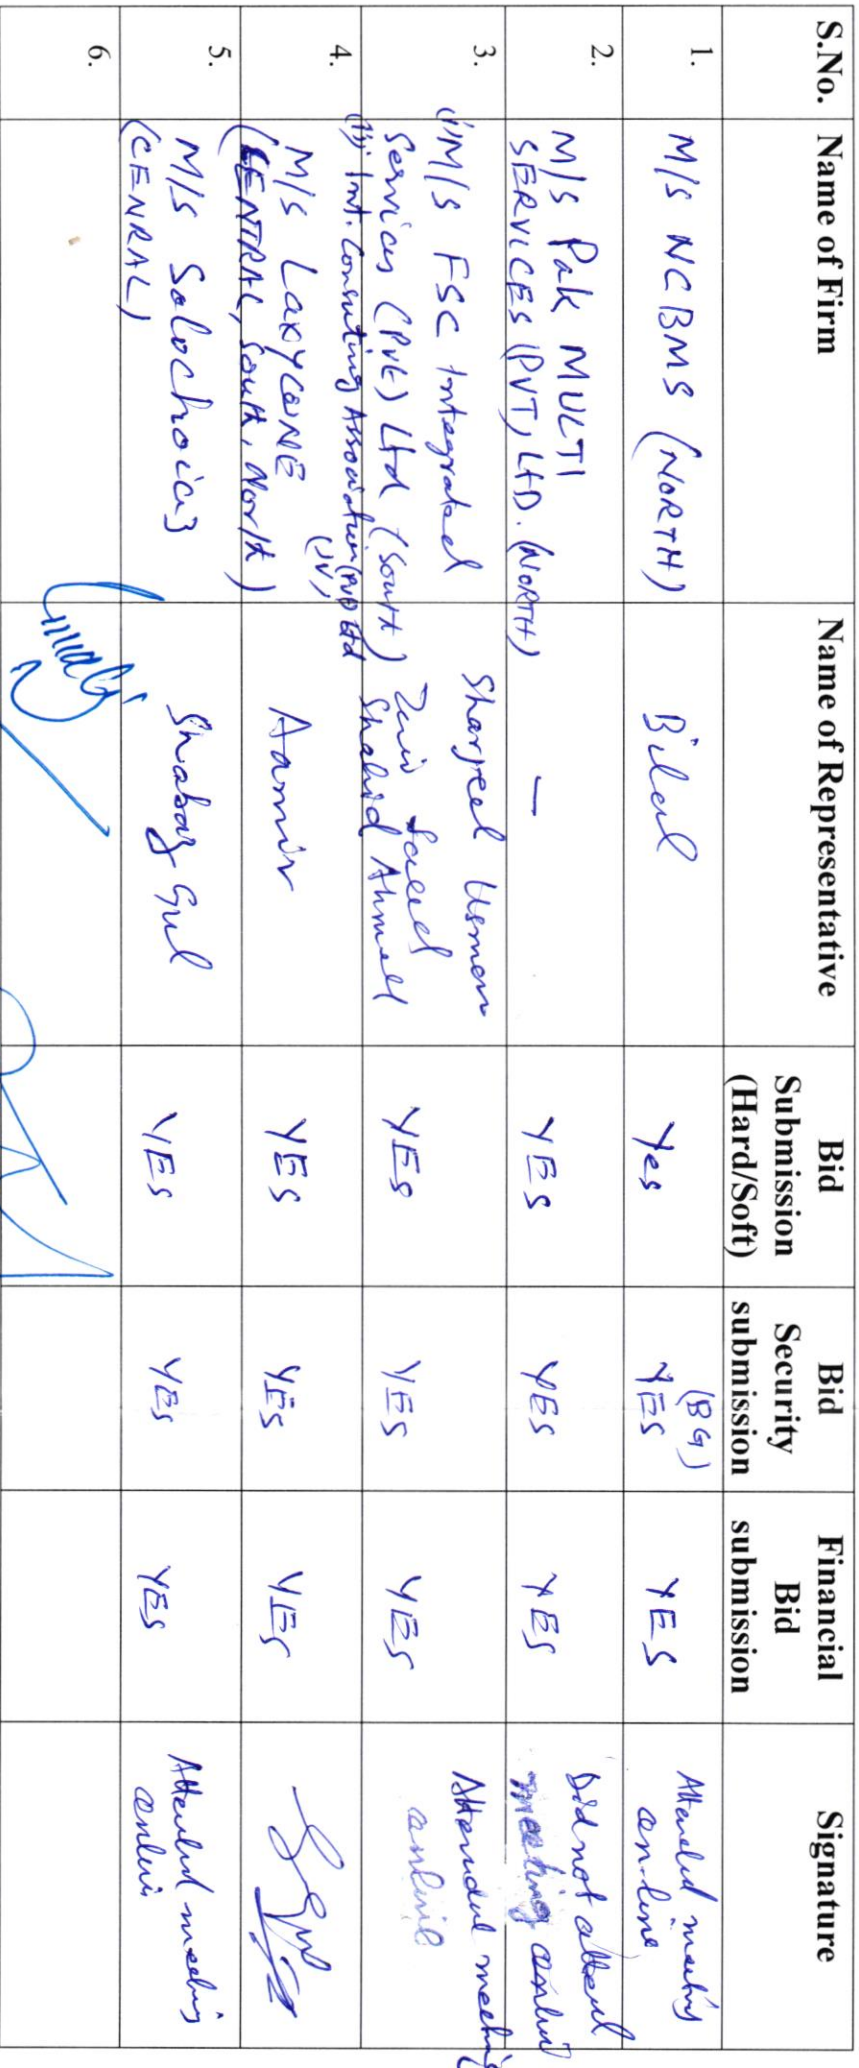 S.No.
Name of Firm
Name of Representative
Bid
Submission
(Hard/Soft)
Bid
Security
submission
Financial
Bid
submission
Signature
1.
M/S NCBMS (NORTH)
Bilal
Yes
(BG)
YES
YES
Attended meeting
on-line
2.
M/S Pak MULTI
SERVICES (PVT) LTD. (NORTH)
—
YES
YES
YES
Did not attend
meeting online
3.
(i) M/S FSC Integrated
Services (Pvt) Ltd (South)
(ii) Int. Consulting Association (Pvt) Ltd
(JV)
Sharjeel Usman
Saeed
Shahid Ahmed
YES
YES
YES
Attended meeting
online
4.
M/S LAXYCONE
(CENTRAL, South, North)
Aamir
YES
YES
YES
5.
M/S Solochoicez
(CENRAL)
Shabaz Gul
YES
YES
YES
Attended meeting
online
6.